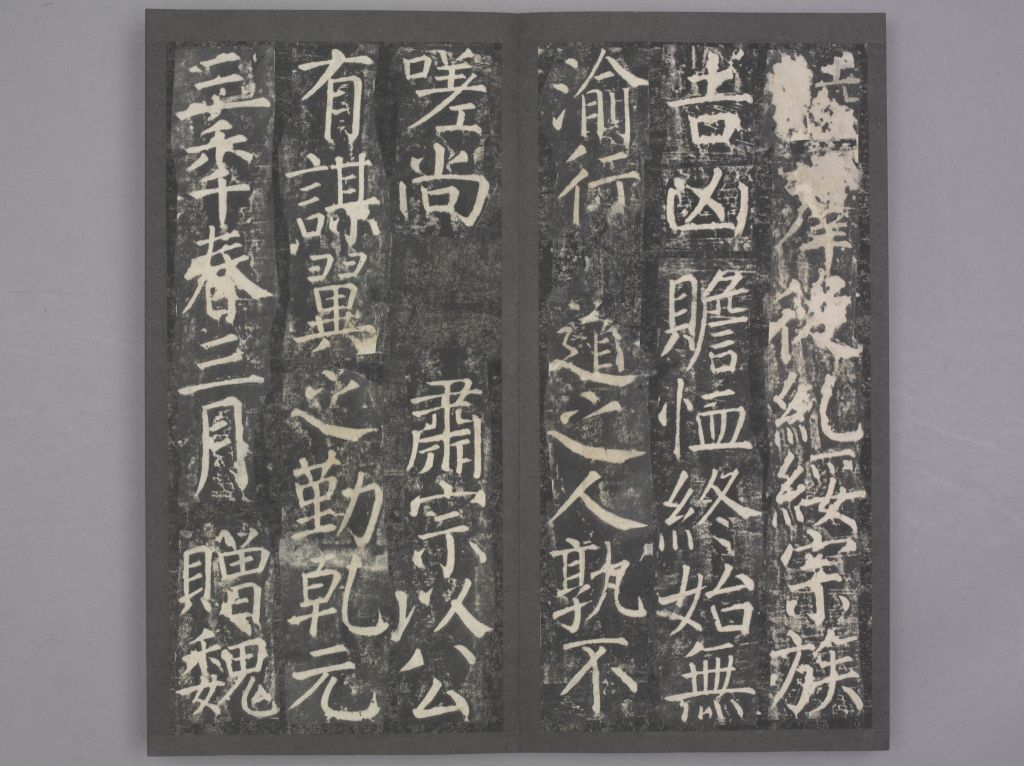 從糺綏宗族
吉凶贍恤終始無
渝行道之人孰不
嗟尚肅宗以公
有謀翼之勤乾元
三年春三月贈魏